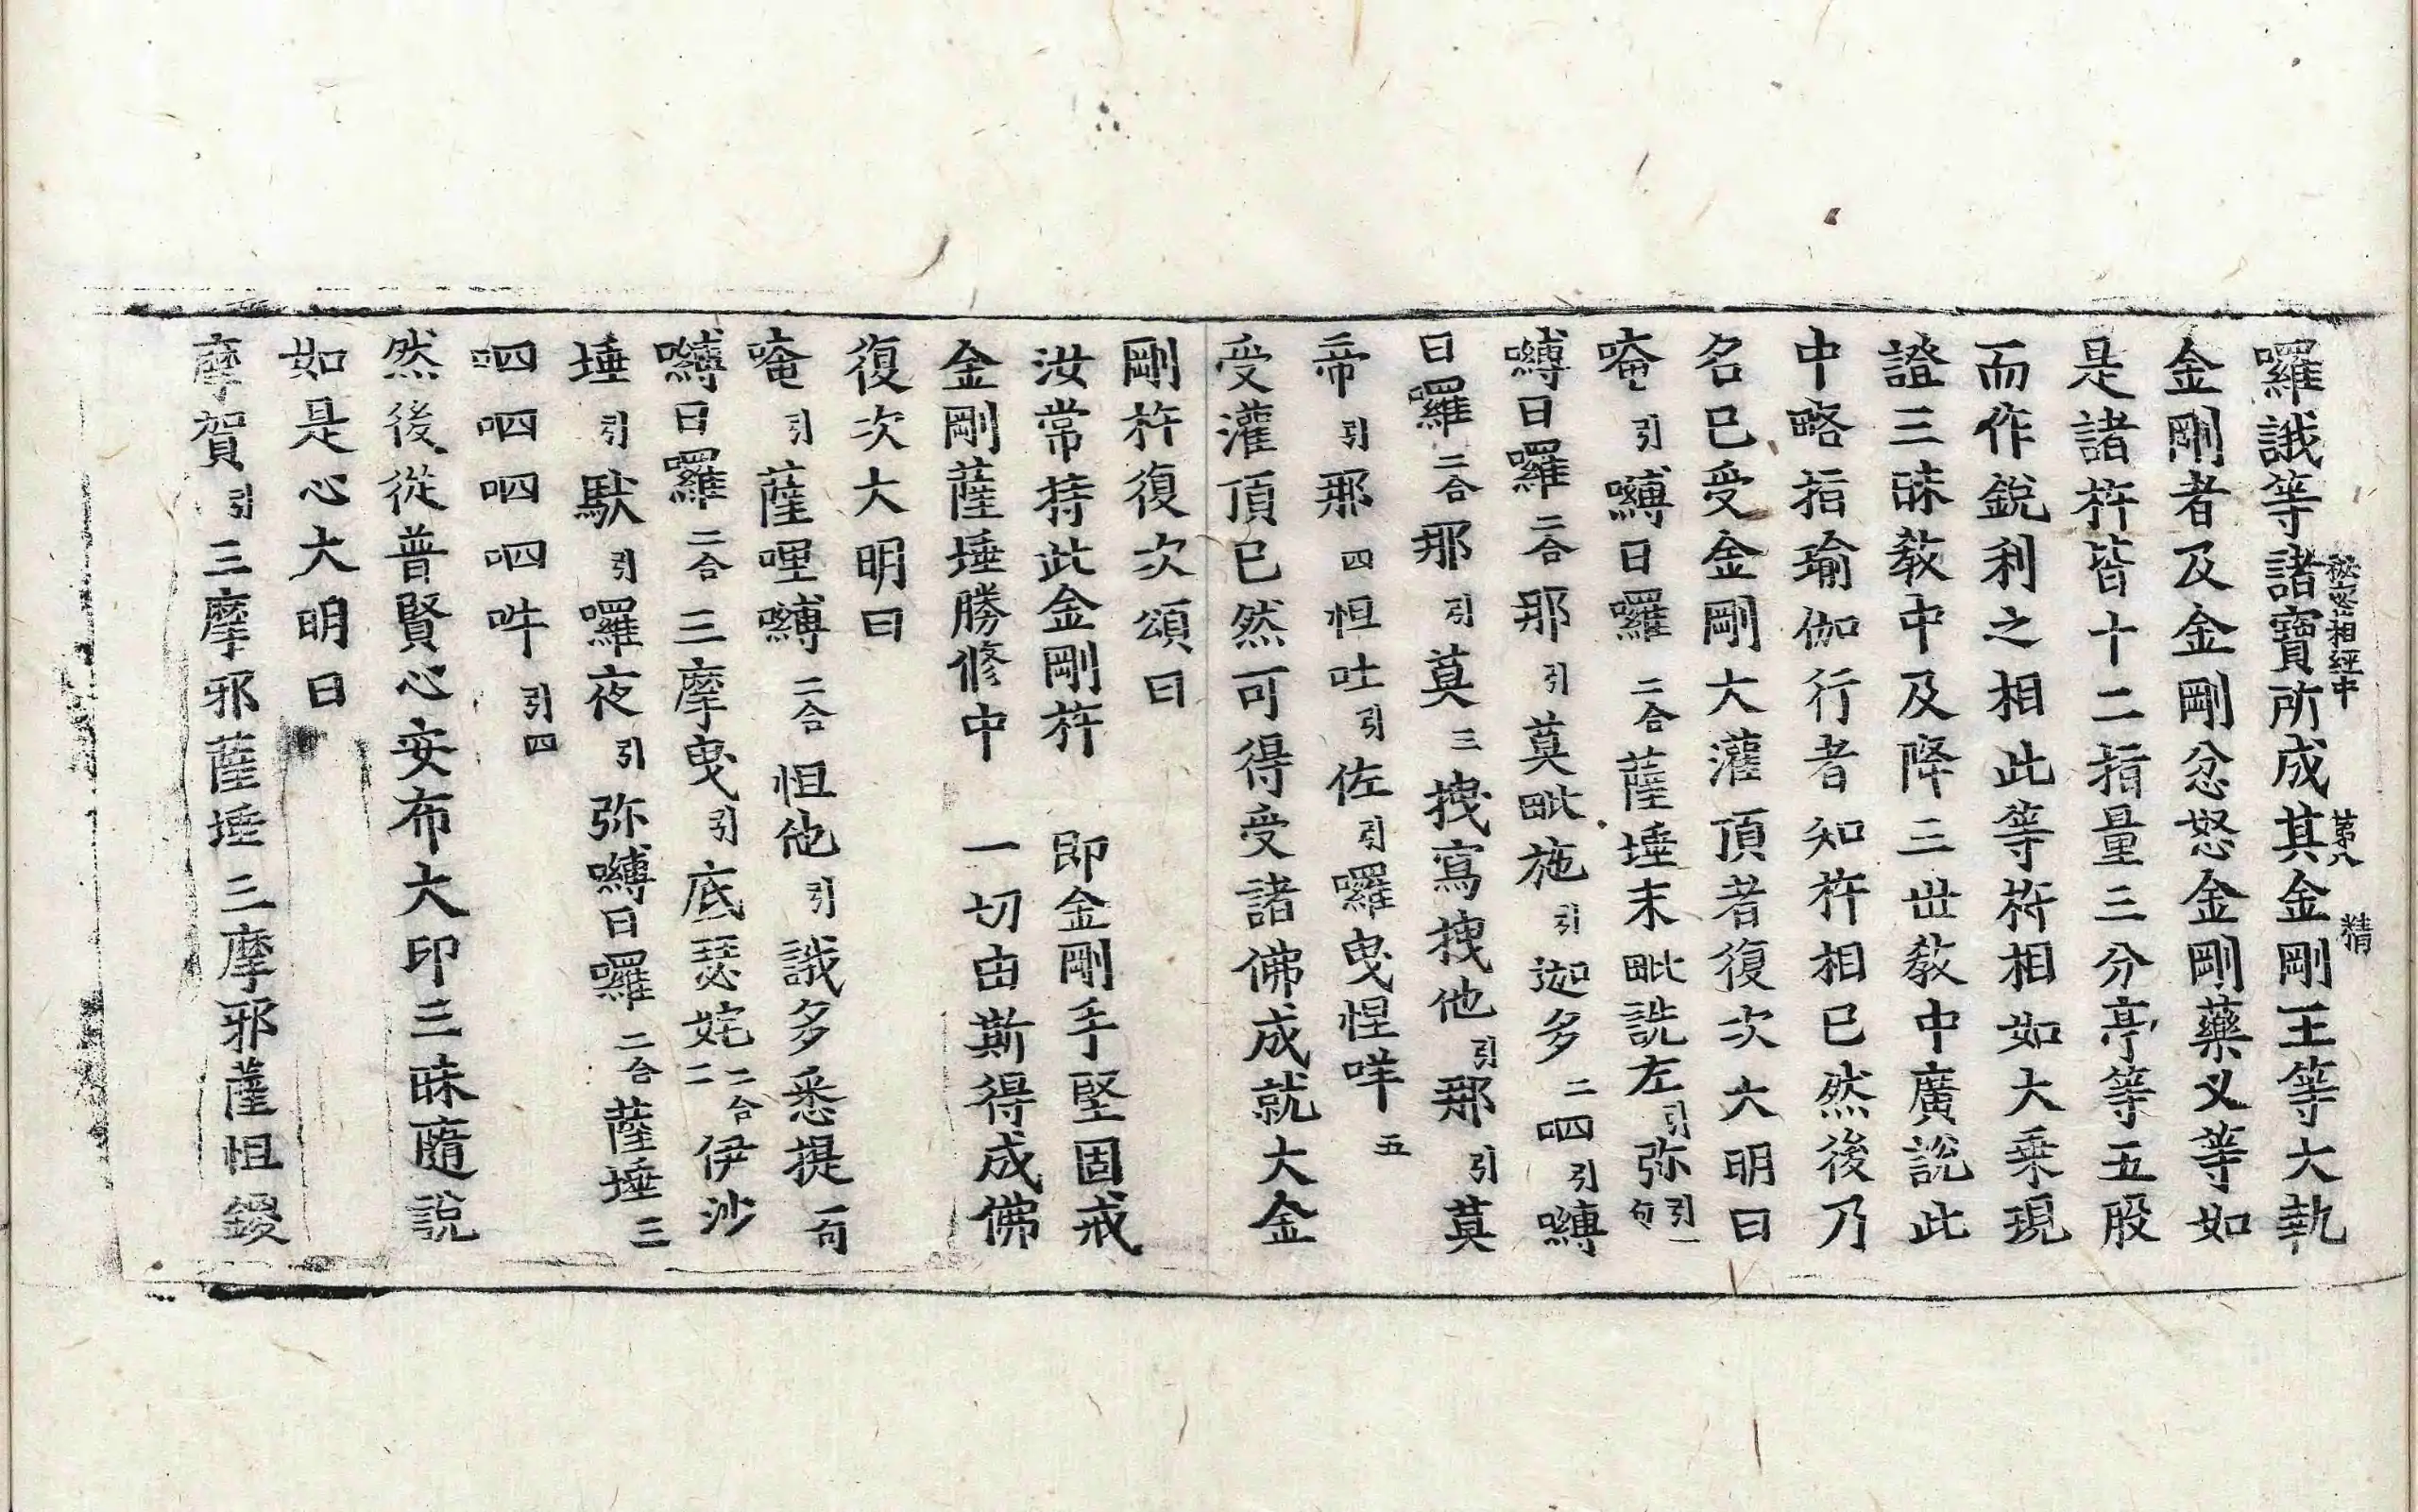 秘密相經中 第八 精
囉誐等諸寶所成其金剛王等大執
金剛者及金剛忿怒金剛藥义等如
是諸杵皆十二指量三分亭等五股
而作銳利之相此等杵相如大乘現
證三昧教中及降三世教中廣說此
中略指瑜伽行者知杵相已然後乃
名已受金剛大灌頂者復次大明曰
唵引嚩日囉二合薩埵末毗詵左引弥引一句
嚩日囉二合那引莫毗施引迦多二呬引嚩
日囉二合那引莫三拽寫拽他引那引莫
帝引那四怛吐引佐引囉曳惺咩五
受灌頂已然可得受諸佛成就大金
剛杵復次頌曰
汝常持此金剛杵 即金剛手堅固戒
金剛薩埵勝修中 一切由斯得成佛
復次大明曰
唵引薩哩嚩二合怛他引誐多悉提一句
嚩日囉二合三摩曳引底瑟姹二合二伊沙
埵引馱引囉夜引弥嚩日囉二合薩埵三
呬呬呬呬吽引四
然後從普賢心安布大印三昧隨說
如是心大明曰
摩賀引三摩邪薩埵三摩邪薩怛鑁